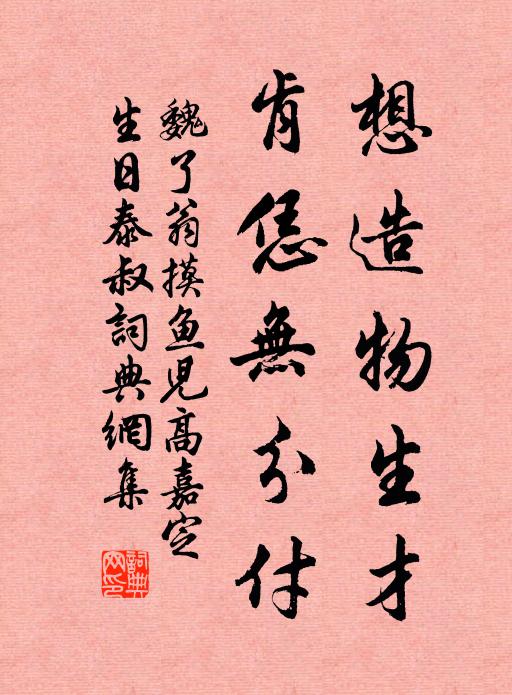 想造物生才
肯恁無分付
魏了翁摸鱼児高嘉定
生日泰叔詞典網集
詞典网印